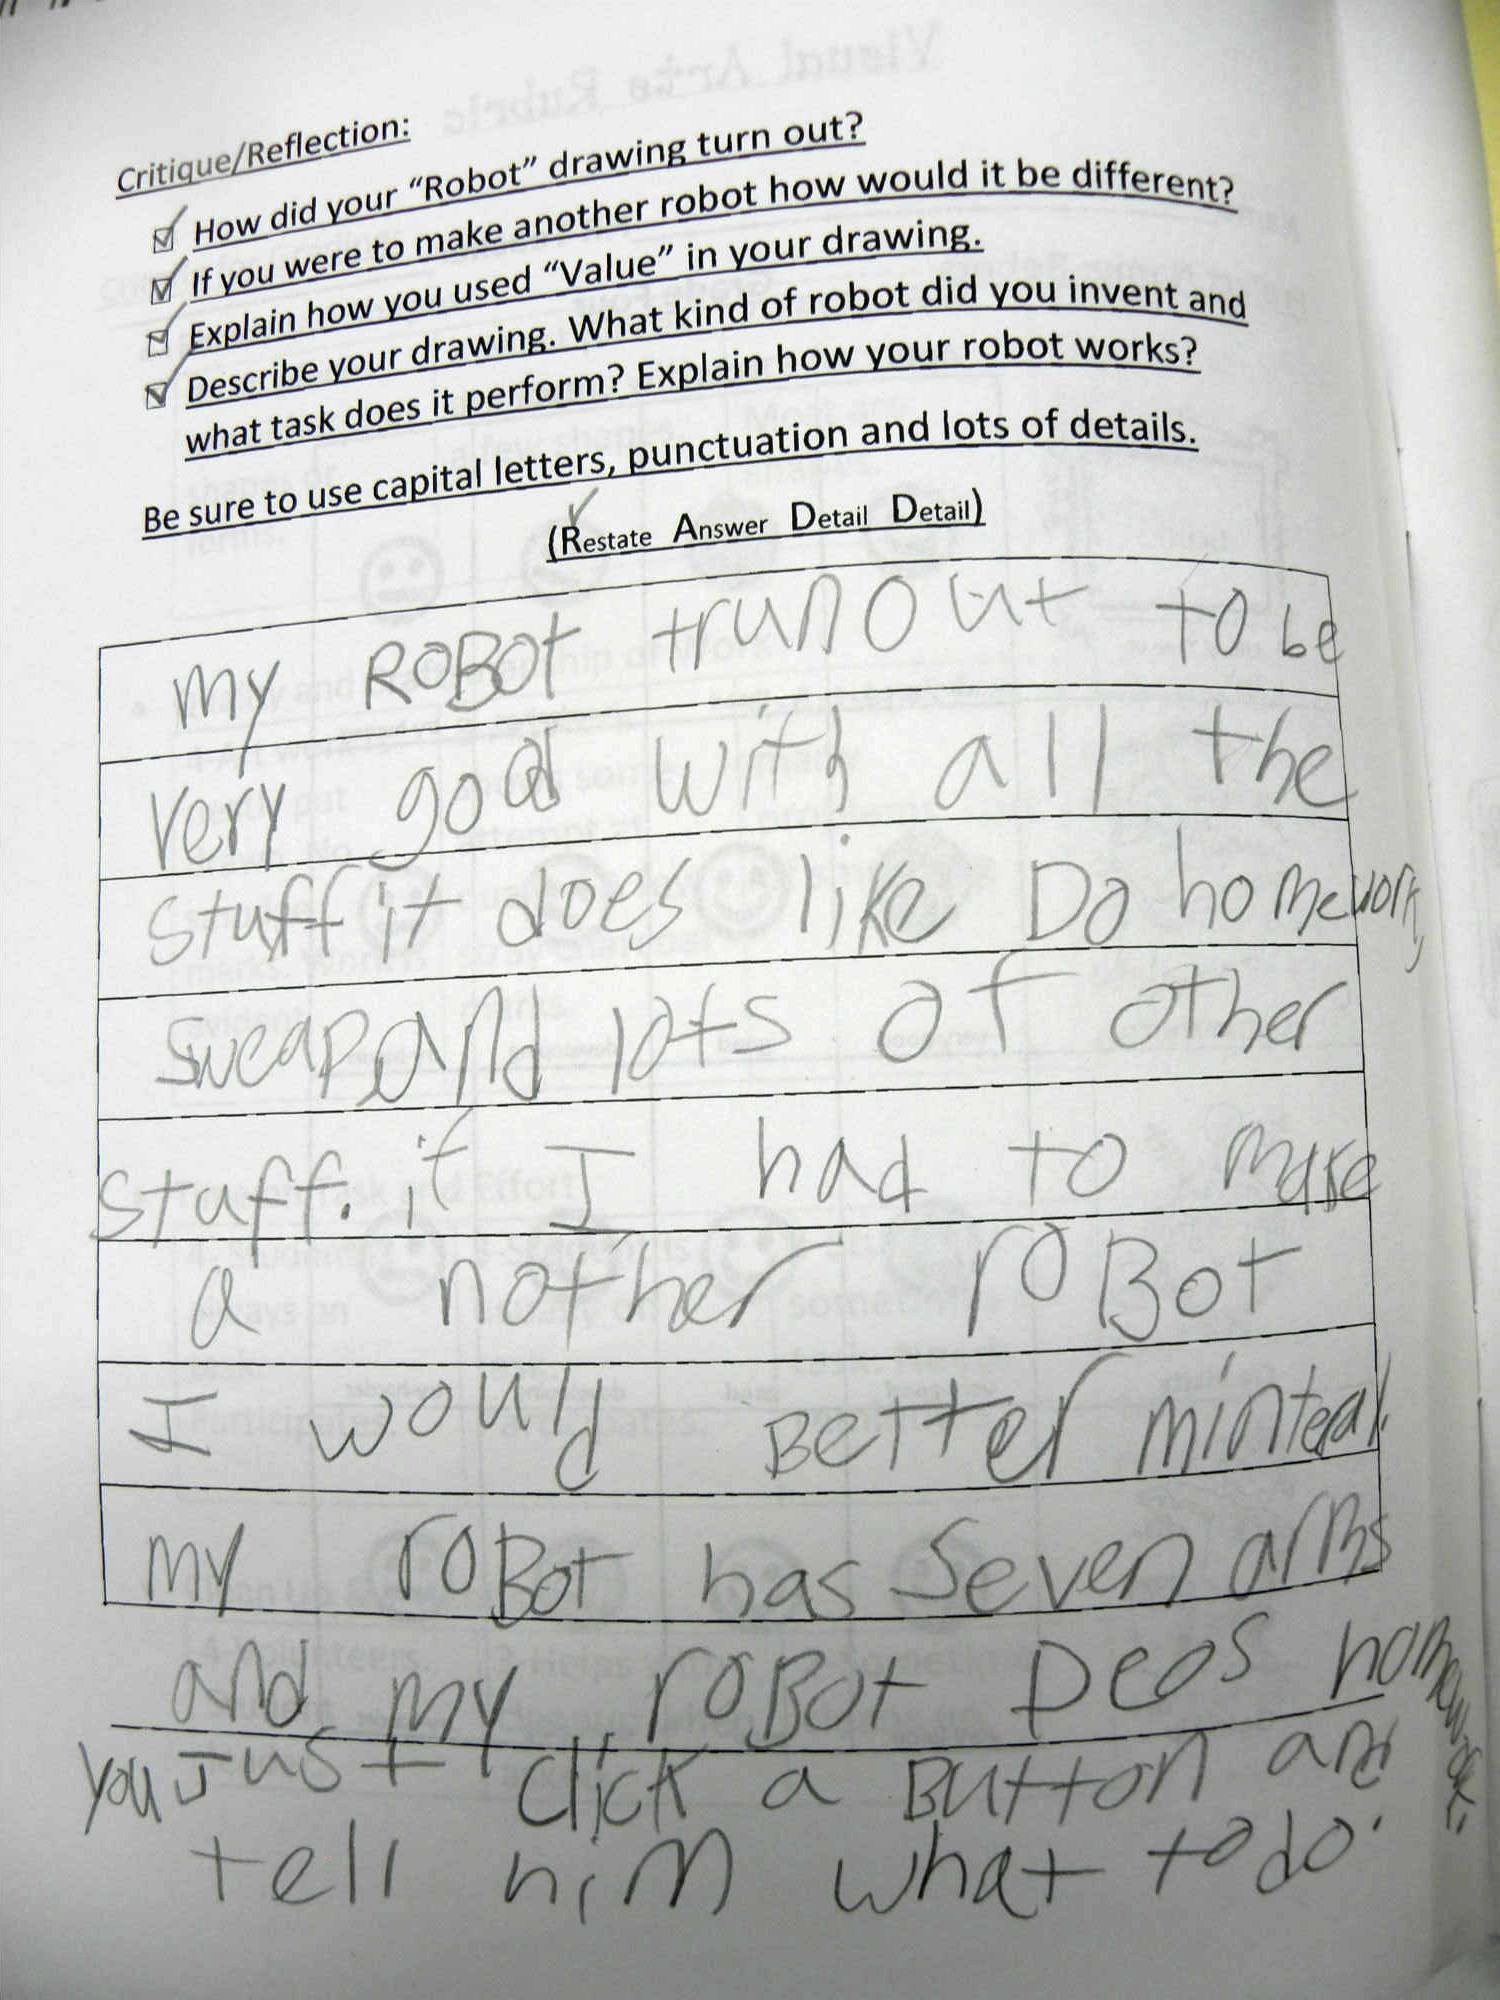 Critique/Reflection:
How did your "Robot" drawing turn out?
If you were to make another robot how would it be different?
Explain how you used "Value" in your drawing.
Describe your drawing. What kind of robot did you invent and
what task does it perform? Explain how your robot works?
Be sure to use capital letters, punctuation and lots of details.
(Restate Answer Detail Detail)
my ROBOt trun Out to be
very good with all the
stuff it does like Do homework,
sweap and lots of other
stuff. if I had to make
a nother roBot
I would Better minteal.
my roBot has Seven arms
and my roBot Deos homework.
you Just click a Button and
tell him what to do.